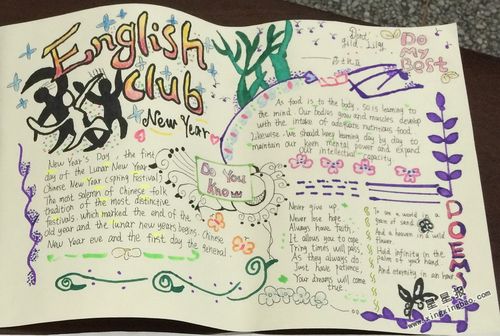 English
club
New Year
New Year's Day, the first
day of the Lunar New Year
Chinese New Year (spring Festival)
The most solemn of Chinese folk
tradition of the most distinctive
festivals, which marked the end of the Chinese
old year and the lunar new years begins.
New Year eve and the first day the general
Do You
Know
Do
My
Best
As food is to the body, so is learning to
the mind. Our bodies grow and muscles develop
with the intake of adequate nutritious food.
Likewise. We should keep learning day by day to
maintain our keen mental power and expand
our intellectual capacity
Never give up,
Never lose hope.
Always have faith,
It allows you to cope
Trying times will pass,
As they always do.
Just have patience,
Your dreams will come
true
To see a world in a
grain of sand
And a heaven in a wild
flower
Hold infinity in the
palm of your hand
And eternity in an hour
POEM
星星报
www.xingxingbao.com